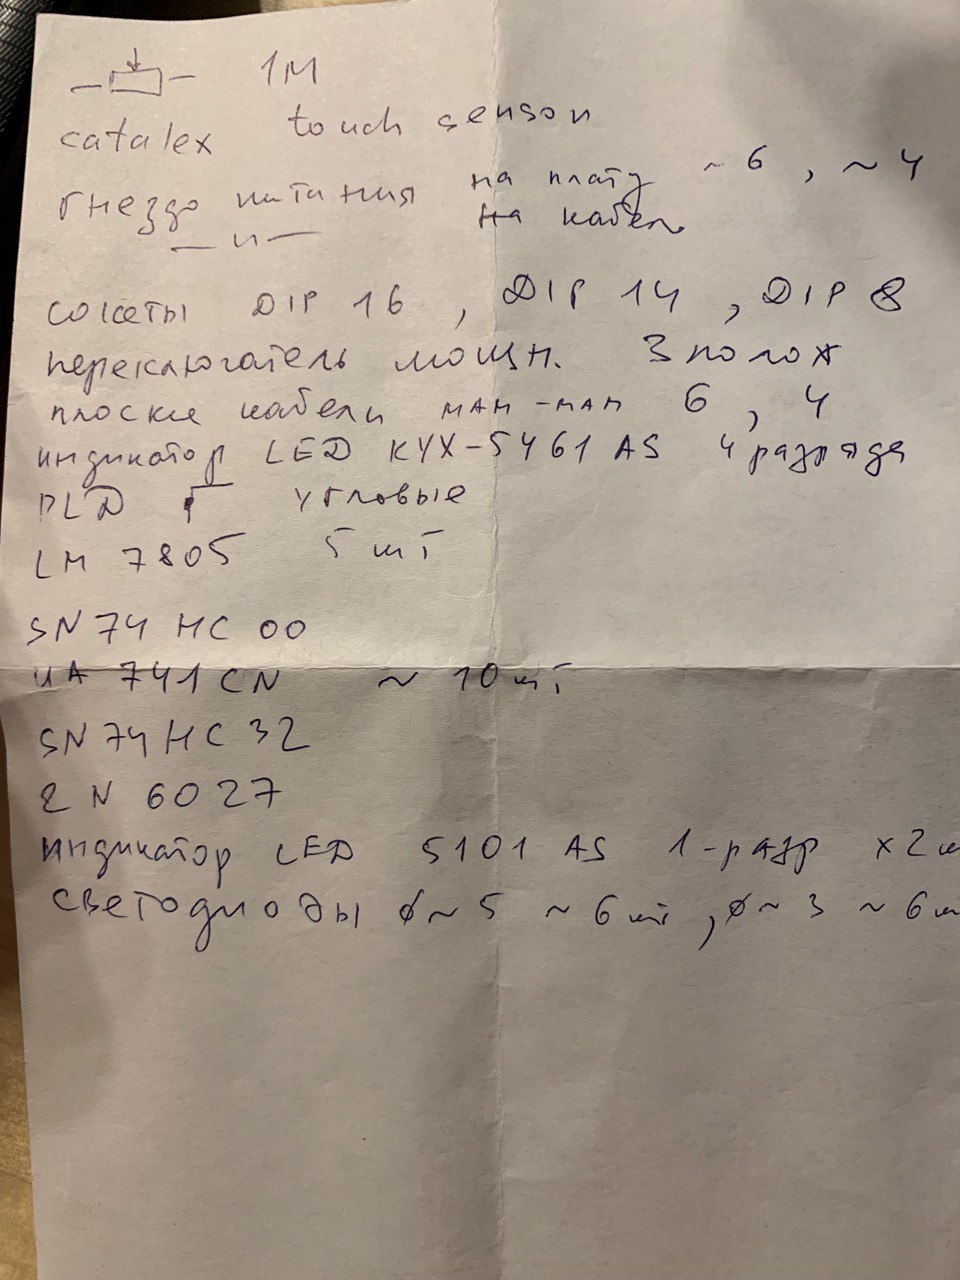 1М
catalex touch sensor
гнездо питания на плату ~6, ~4
— и — на кабель
сокеты DIP 16, DIP 14, DIP 8
переключатель мощн. 3 полож
плоские кабели мам-мам 6, 4
индикатор LED KYX-5461AS 4 разряда
PLD угловые
LM 7805 5 шт
SN 74 HC 00
UA 741 CN ~ 10 шт
SN 74 HC 32
2 N 6027
индикатор LED 5101 AS 1-разр x2ш
светодиоды ϕ~5 ~6шт, ϕ~3 ~6ш